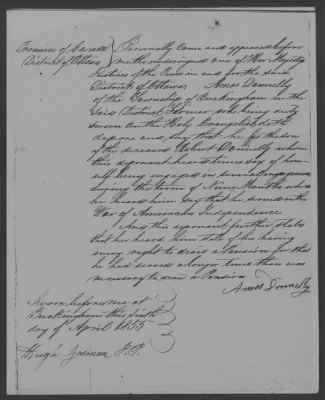 Province of Canada
District of Ottawa
Personally Came and appeared before
me the undersigned one of Her Majestys
Justices of the Peace in and for the said
District of Ottawa Amos Donnelly
of the Township of Buckingham in the
said District Farmer who being duly
Sworn On the Holy Evangelists doth
Depose and say that he is the son
of the deceased Donnelly whom
this deponent heard times say of him
self being engaged in
during the term of Nine Months which
he heard him say that he served in the
War of American Independence
And this deponent further States
that he heard him state of his having
every right to draw a Pension for that
he had served a longer time than was
necessary to draw a Pension
Amos Donnelly
Sworn before me at
Buckingham this sixth
day of April 1855
Hugh J.P.